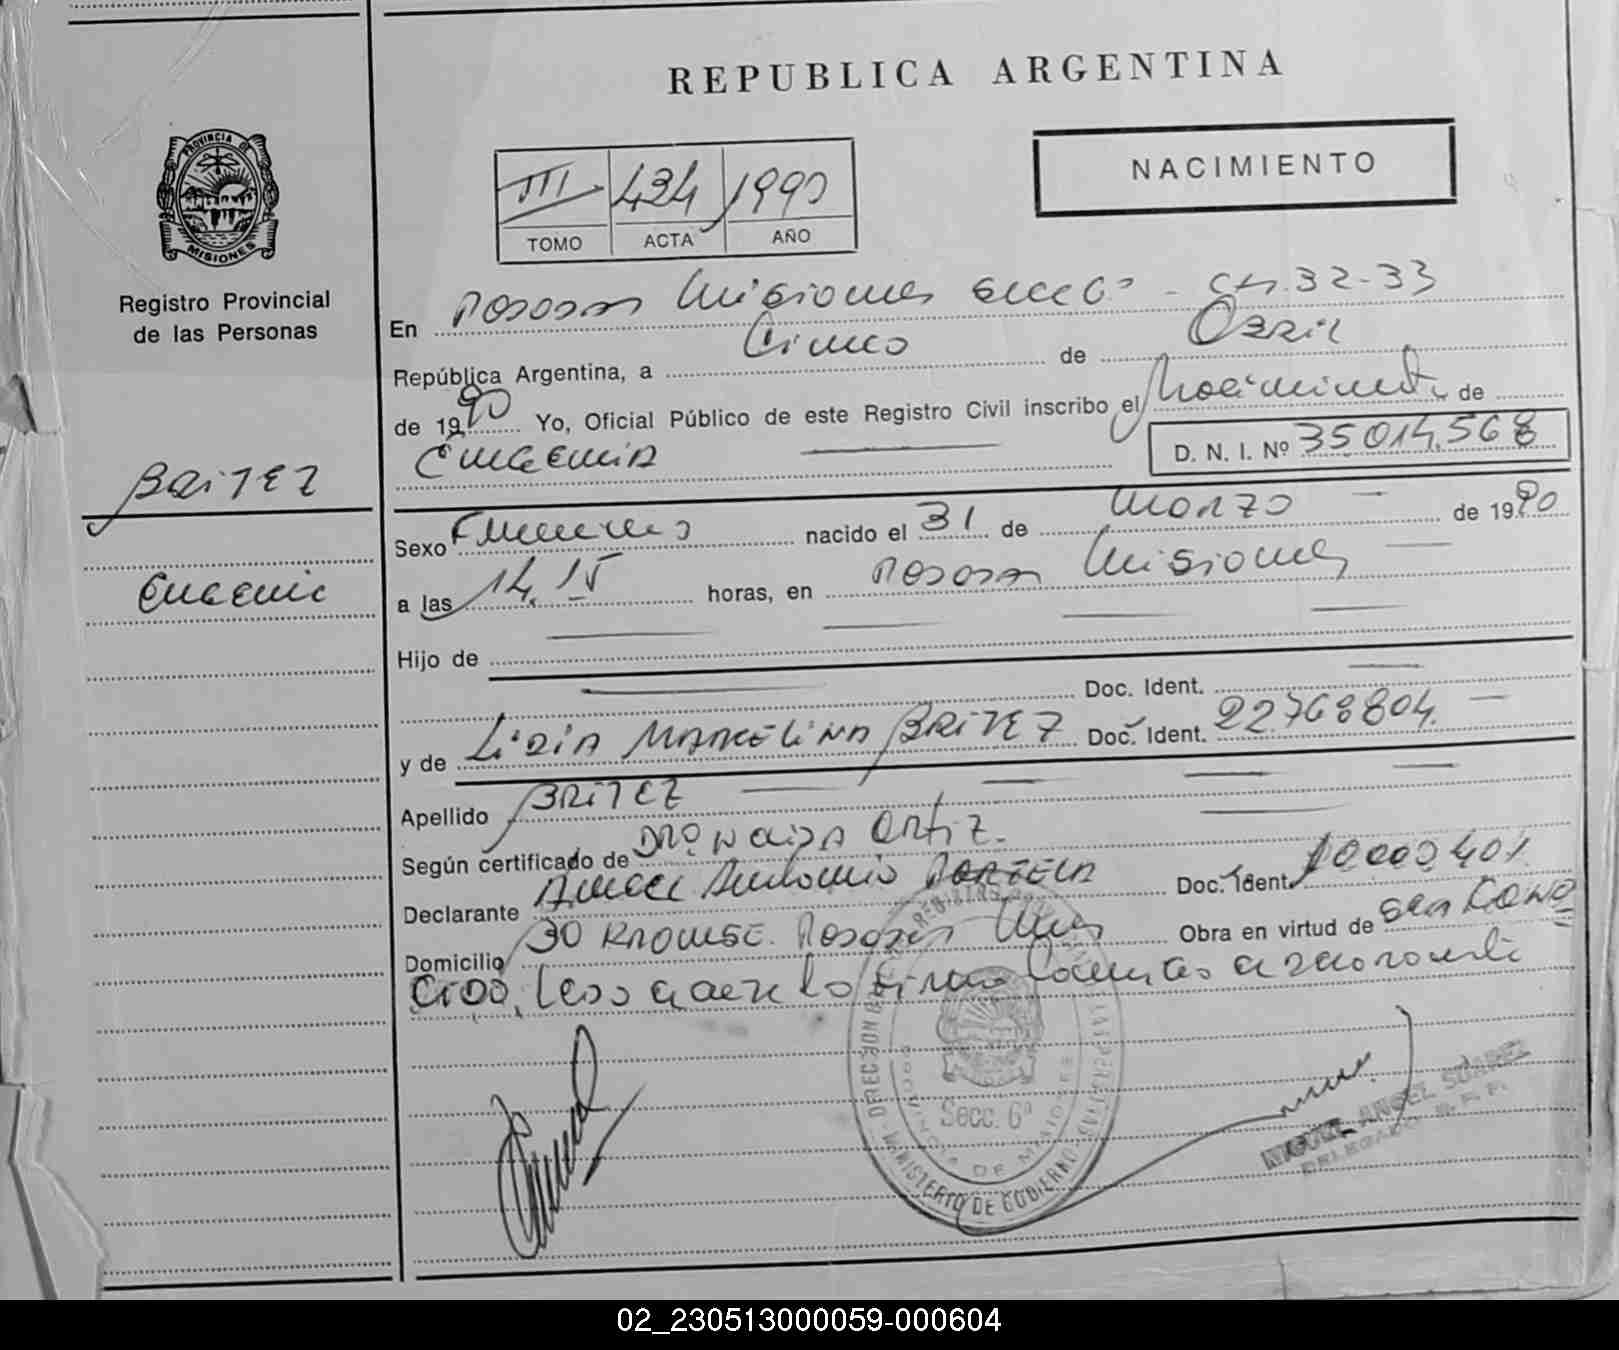 REPUBLICA ARGENTINA
NACIMIENTO
III 434 1990
TOMO ACTA AÑO
PROVINCIA DE
MISIONES
Registro Provincial
de las Personas
BRITEZ
Eugenia
En Posadas Misiones Secc 6ª - 32-33
República Argentina, a Cinco de Abril
de 1990 Yo, Oficial Público de este Registro Civil inscribo el Nacimiento de
Eugenia D. N. I. Nº 35014.568
Sexo Femenino nacido el 31 de Marzo de 1990
a las 14.15 horas, en Posadas Misiones
Hijo de
Doc. Ident.
y de Lidia Marcelina BRITEZ Doc. Ident. 22.768804.
Apellido BRITEZ
Según certificado de Ortiz.
Declarante Antonio Doc. Ident.
Domicilio 30 Posadas Mnes Obra en virtud de
Leida el acta la firma
DIRECCION REGISTRO
PROVINCIA DE MISIONES
Secc. 6ª
MINISTERIO DE GOBIERNO
MIGUEL ANGEL SUAREZ
DELEGADO
02_230513000059-000604